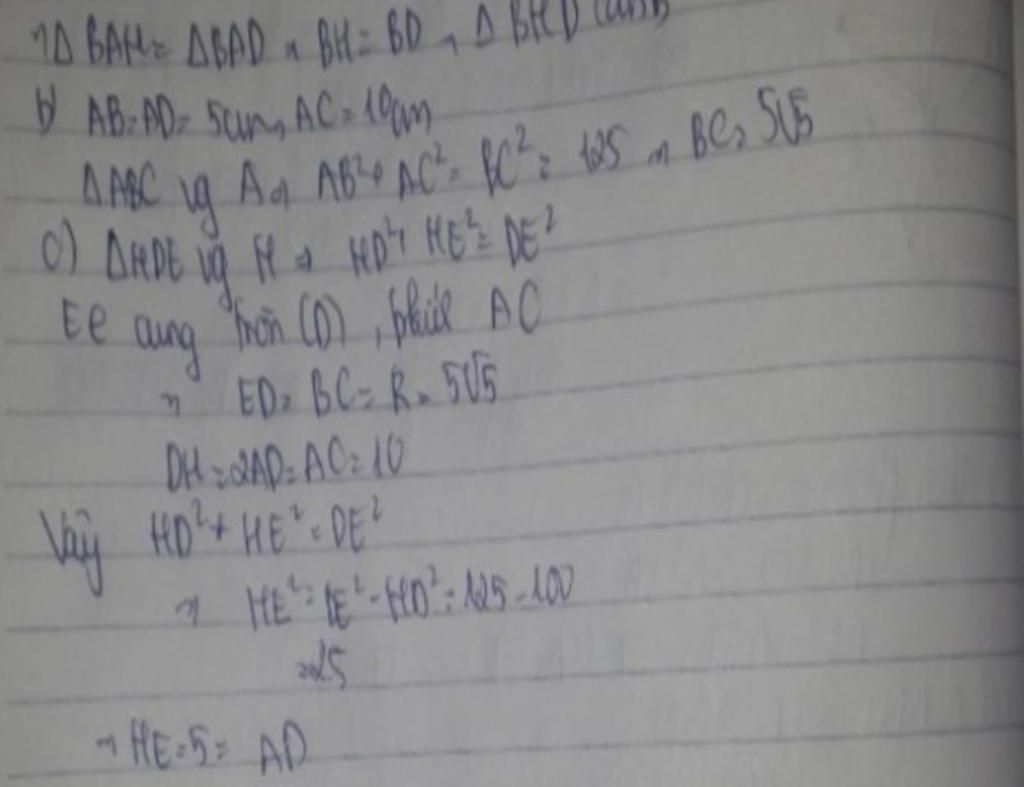 ⇒ Δ BAH = ΔBAD ⇒ BH = BD ⇒ Δ BHD cân
b) AB=AD= 5cm, AC=10cm
ΔABC vg A ⇒ AB²+AC²=BC²= 125 ⇒ BC= 5√5
c) ΔHDE vg H ⇒ HD²+ HE²=DE²
Ee cung tròn (D), BC
⇒ ED= BC= R= 5√5
DH=2AD=AC=10
Vậy HD²+ HE²=DE²
⇒ HE²=DE²-HD²=125-100
=25
⇒ HE=5= AD